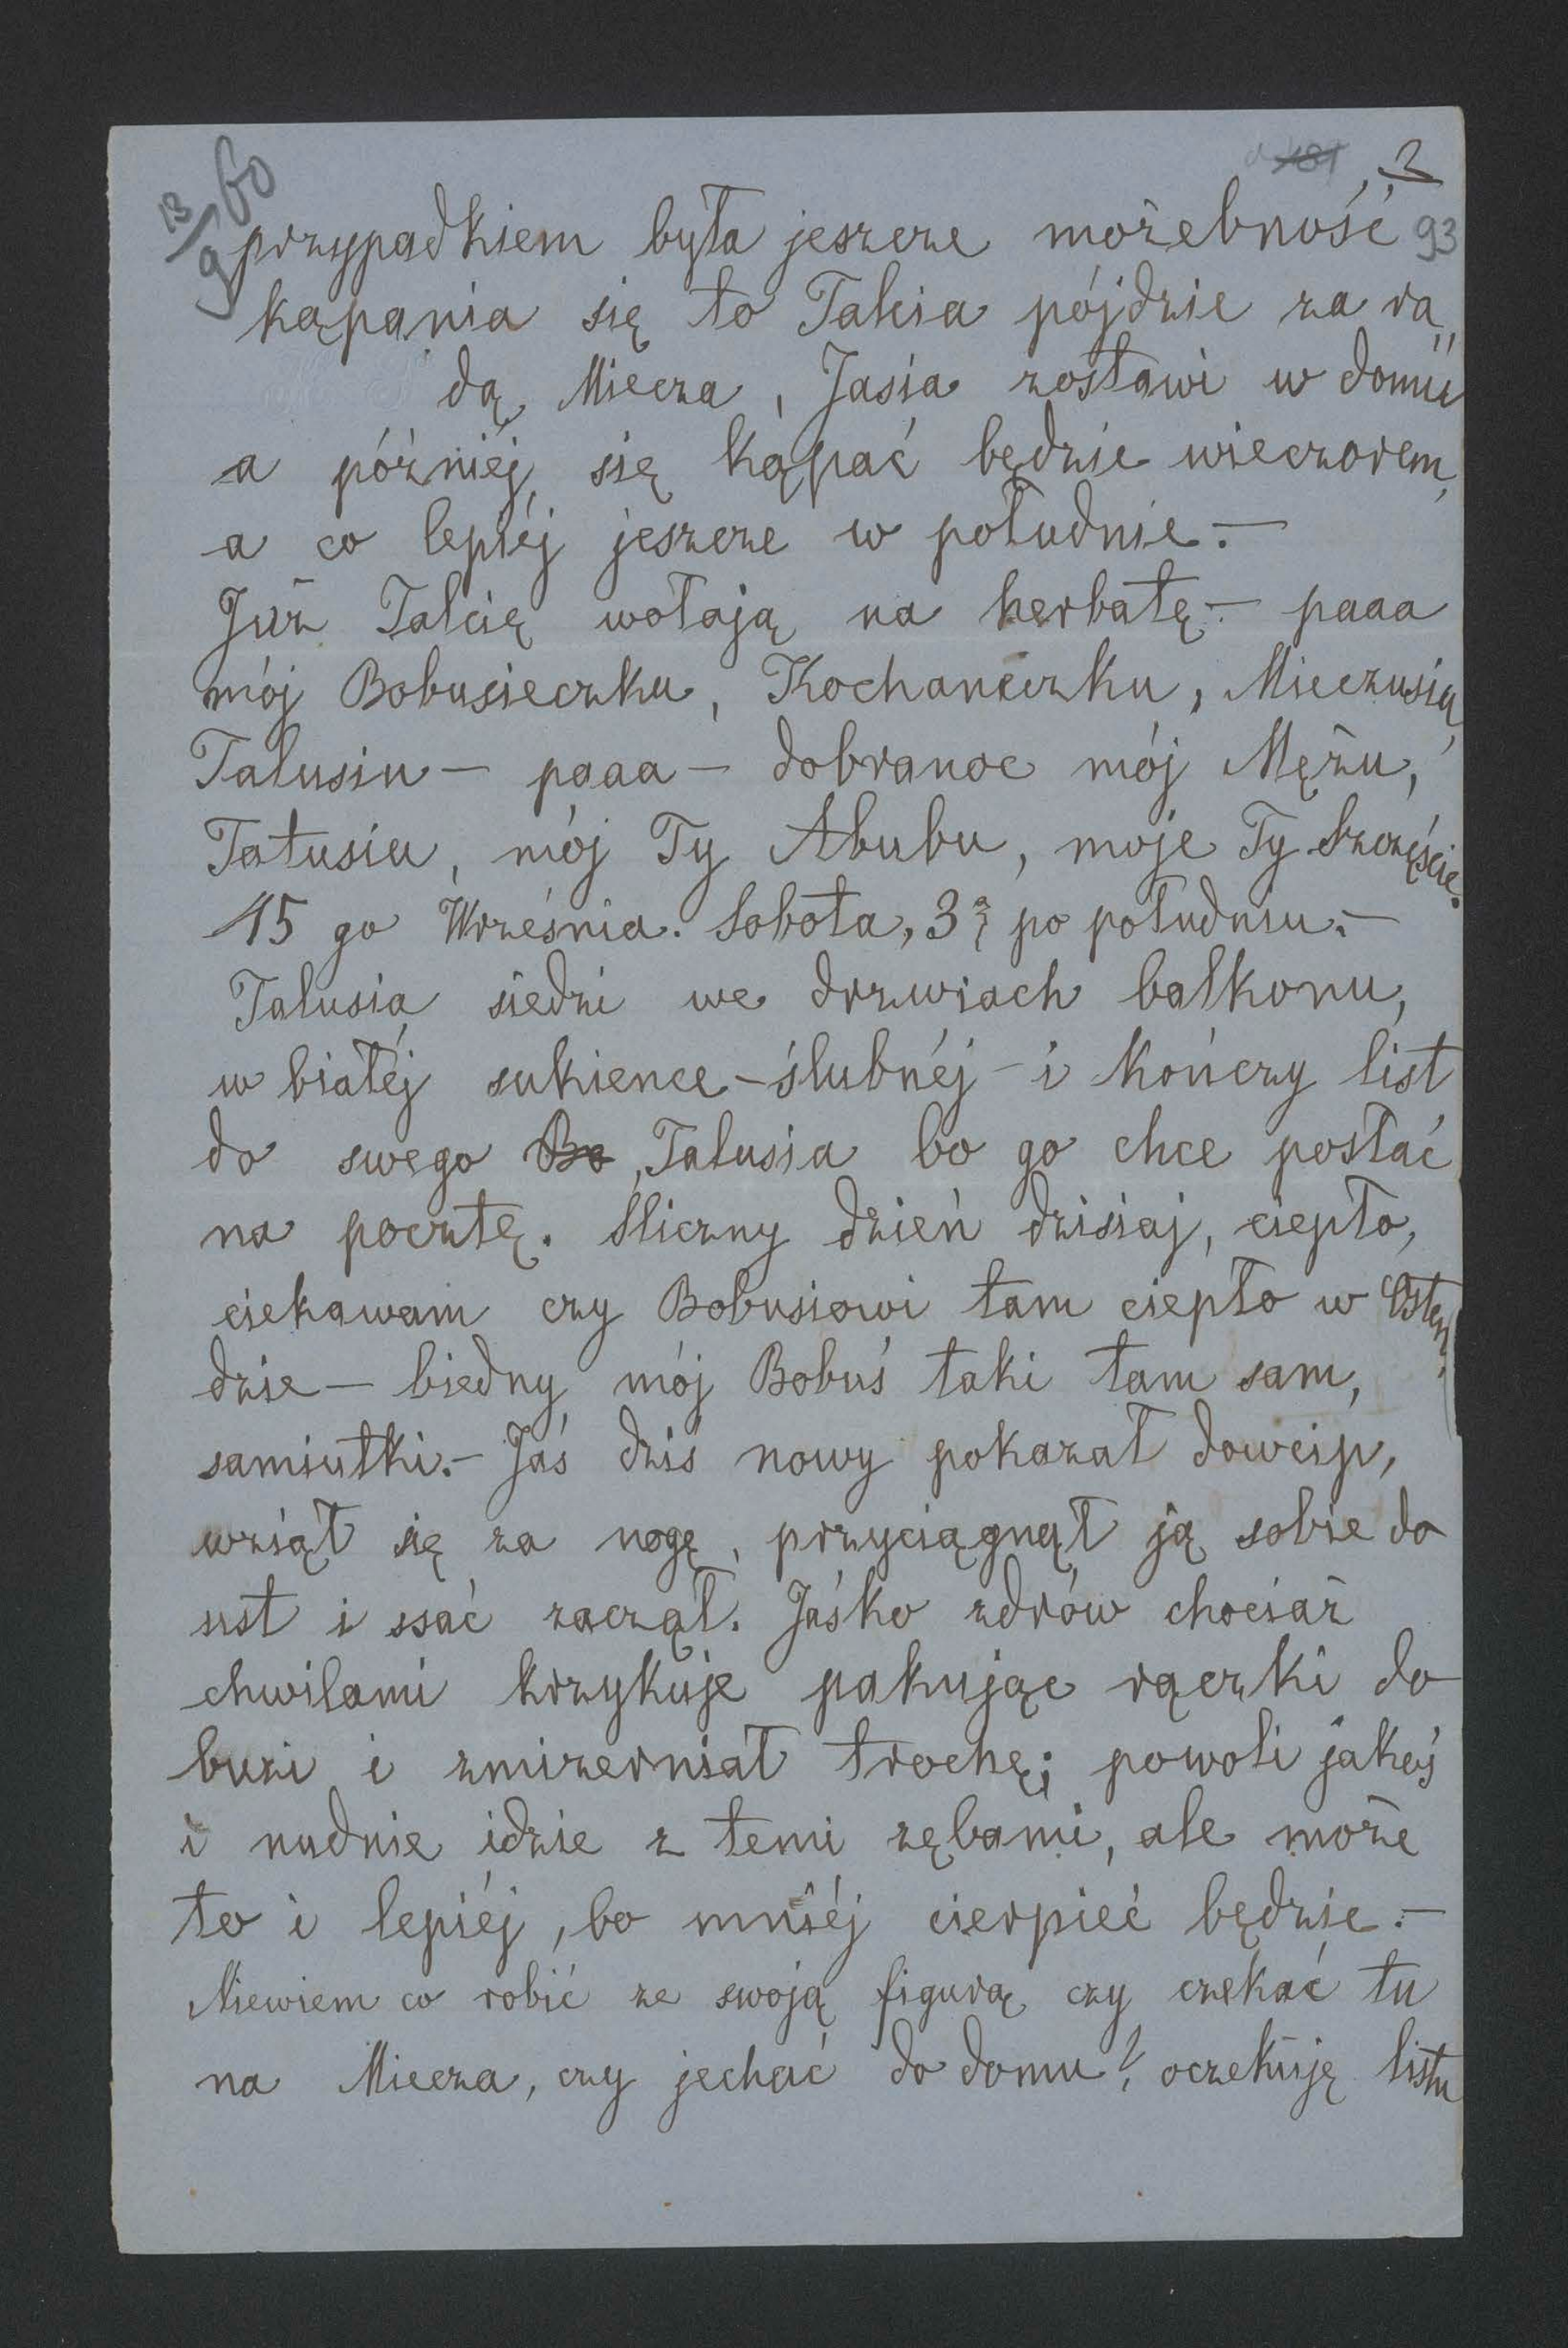 13/9 60
2
93
przypadkiem była jeszcze możebność
kąpania się to Talcia pójdzie za ra„
dą Miecza, Jasia zostawi w domu
a późniéj się kąpać będzie wieczorem,
a co lepiéj jeszcze w południe.—
Już Talcię wołają na herbatę.— paaa
mój Bobusieczku, Kochaneczku, Mieczusiu,
Talusiu — paaa — dobranoc mój Mężu,
Tatusiu, mój Ty Abubu, moje Ty Szczęście.
15 go Września. Sobota, 3ą po południu.—
Talusia siedzi we drzwiach balkonu,
w białéj sukience — ślubnéj — i kończy list
do swego Bo, Talusia bo go chce posłać
na pocztę. Sliczny dzień dzisiaj, ciepło,
ciekawam czy Bobusiowi tam ciepło w Osten„
dzie — biedny mój Bobuś taki tam sam,
samiutki.— Jaś dziś nowy pokazał dowcip,
wziął się za nogę, przyciągnął ją sobie do
ust i ssać zaczął. Jaśko zdrów chociaż
chwilami krzykuje pakując rączki do
buzi i zmizerniał trochę; powoli jakoś
i nudnie idzie z temi zębami, ale może
to i lepiéj, bo mniéj cierpieć będzie.—
Niewiem co robić ze swoją figurą czy czekać tu
na Miecza, czy jechać do domu? oczekuję listu